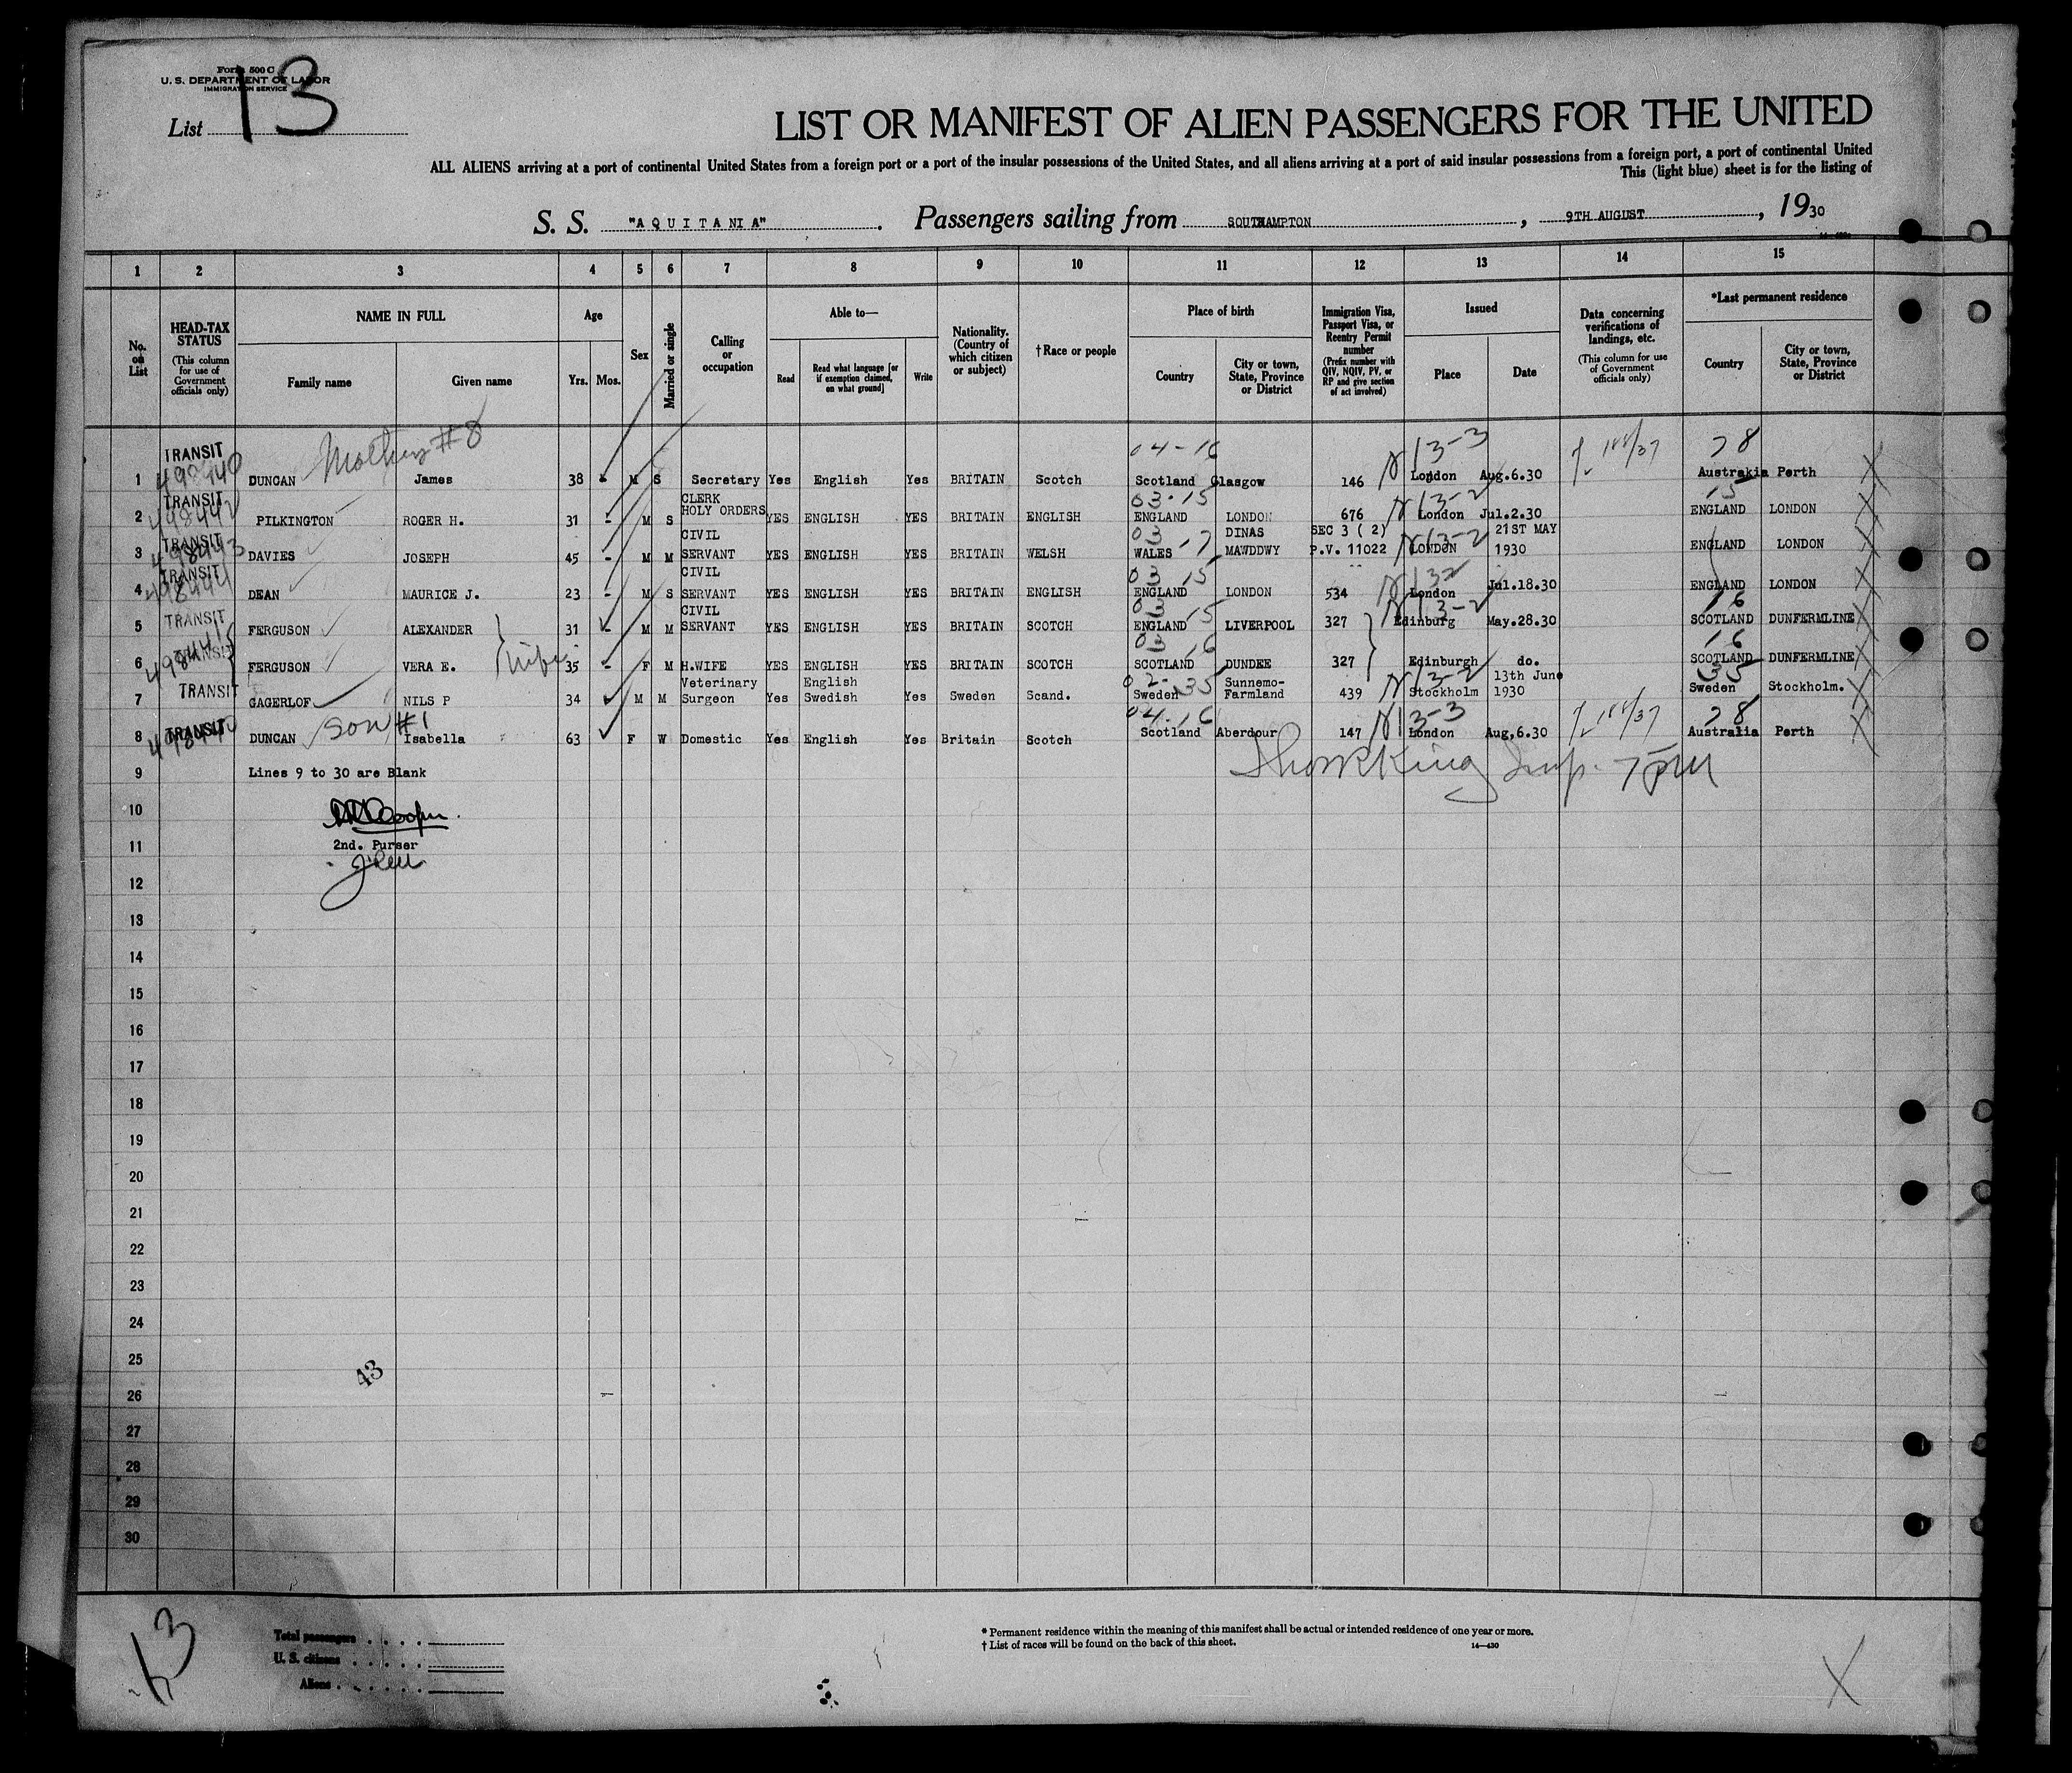 Form 500 C
U. S. DEPARTMENT OF LABOR
IMMIGRATION SERVICE
List 13
LIST OR MANIFEST OF ALIEN PASSENGERS FOR THE UNITED
ALL ALIENS arriving at a port of continental United States from a foreign port or a port of the insular possessions of the United States, and all aliens arriving at a port of said insular possessions from a foreign port, a port of continental United
This (light blue) sheet is for the listing of
S. S. "AQUITANIA". Passengers sailing from SOUTHAMPTON, 9TH AUGUST, 1930
1 2 3 4 5 6 7 8 9 10 11 12 13 14 15
No. on List
HEAD-TAX STATUS
(This column for use of Government officials only)
NAME IN FULL
Family name Given name
Age
Yrs. Mos.
Sex
Married or single
Calling or occupation
Able to—
Read
Read what language [or if exemption claimed, on what ground]
Write
Nationality. (Country of which citizen or subject)
†Race or people
Place of birth
Country
City or town, State, Province or District
Immigration Visa, Passport Visa, or Reentry Permit number
(Prefix number with QIV, NQIV, PV, or RP and give section of act involved)
Issued
Place Date
Data concerning verifications of landings, etc.
(This column for use of Government officials only)
*Last permanent residence
Country
City or town, State, Province or District
TRANSIT Mother #8 04-16 13-3 78
1 498440 DUNCAN James 38 - M S Secretary Yes English Yes BRITAIN Scotch Scotland Glasgow 146 London Aug.6.30 Australia Perth X
TRANSIT CLERK 03-15 13-2 15
2 498442 PILKINGTON ROGER H. 31 - M S HOLY ORDERS YES ENGLISH YES BRITAIN ENGLISH ENGLAND LONDON 676 London Jul.2.30 ENGLAND LONDON X
TRANSIT CIVIL 03 17 DINAS SEC 3 ( 2) 13-2 21ST MAY
3 498443 DAVIES JOSEPH 45 - M M SERVANT YES ENGLISH YES BRITAIN WELSH WALES MAWDDWY P.V. 11022 LONDON 1930 ENGLAND LONDON X
TRANSIT CIVIL 03 15 132
4 498444 DEAN MAURICE J. 23 - M S SERVANT YES ENGLISH YES BRITAIN ENGLISH ENGLAND LONDON 534 London Jul.18.30 ENGLAND LONDON X
TRANSIT CIVIL 03 15 13-2 16
5 FERGUSON ALEXANDER 31 - M M SERVANT YES ENGLISH YES BRITAIN SCOTCH ENGLAND LIVERPOOL 327 Edinburg May.28.30 SCOTLAND DUNFERMLINE X
TRANSIT 03 16 16
6 498445 FERGUSON VERA E. wife 35 - F M H.WIFE YES ENGLISH YES BRITAIN SCOTCH SCOTLAND DUNDEE 327 Edinburgh do. SCOTLAND DUNFERMLINE X
TRANSIT Veterinary English 02-35 Sunnemo- 13-2 13th June 35
7 GAGERLOF NILS P 34 M M Surgeon Yes Swedish Yes Sweden Scand. Sweden Farmland 439 Stockholm 1930 Sweden Stockholm. X
TRANSIT son #1 04-16 13-3 78
8 498440 DUNCAN Isabella 63 F W Domestic Yes English Yes Britain Scotch Scotland Aberdour 147 London Aug,6.30 Australia Perth X
9 Lines 9 to 30 are Blank
10
2nd. Purser
11
12
13
14
15
16
17
18
19
20
21
22
23
24
25
43
26
27
28
29
30
13
Total passengers
U. S. citizens
Aliens
* Permanent residence within the meaning of this manifest shall be actual or intended residence of one year or more.
† List of races will be found on the back of this sheet. 14—430
X